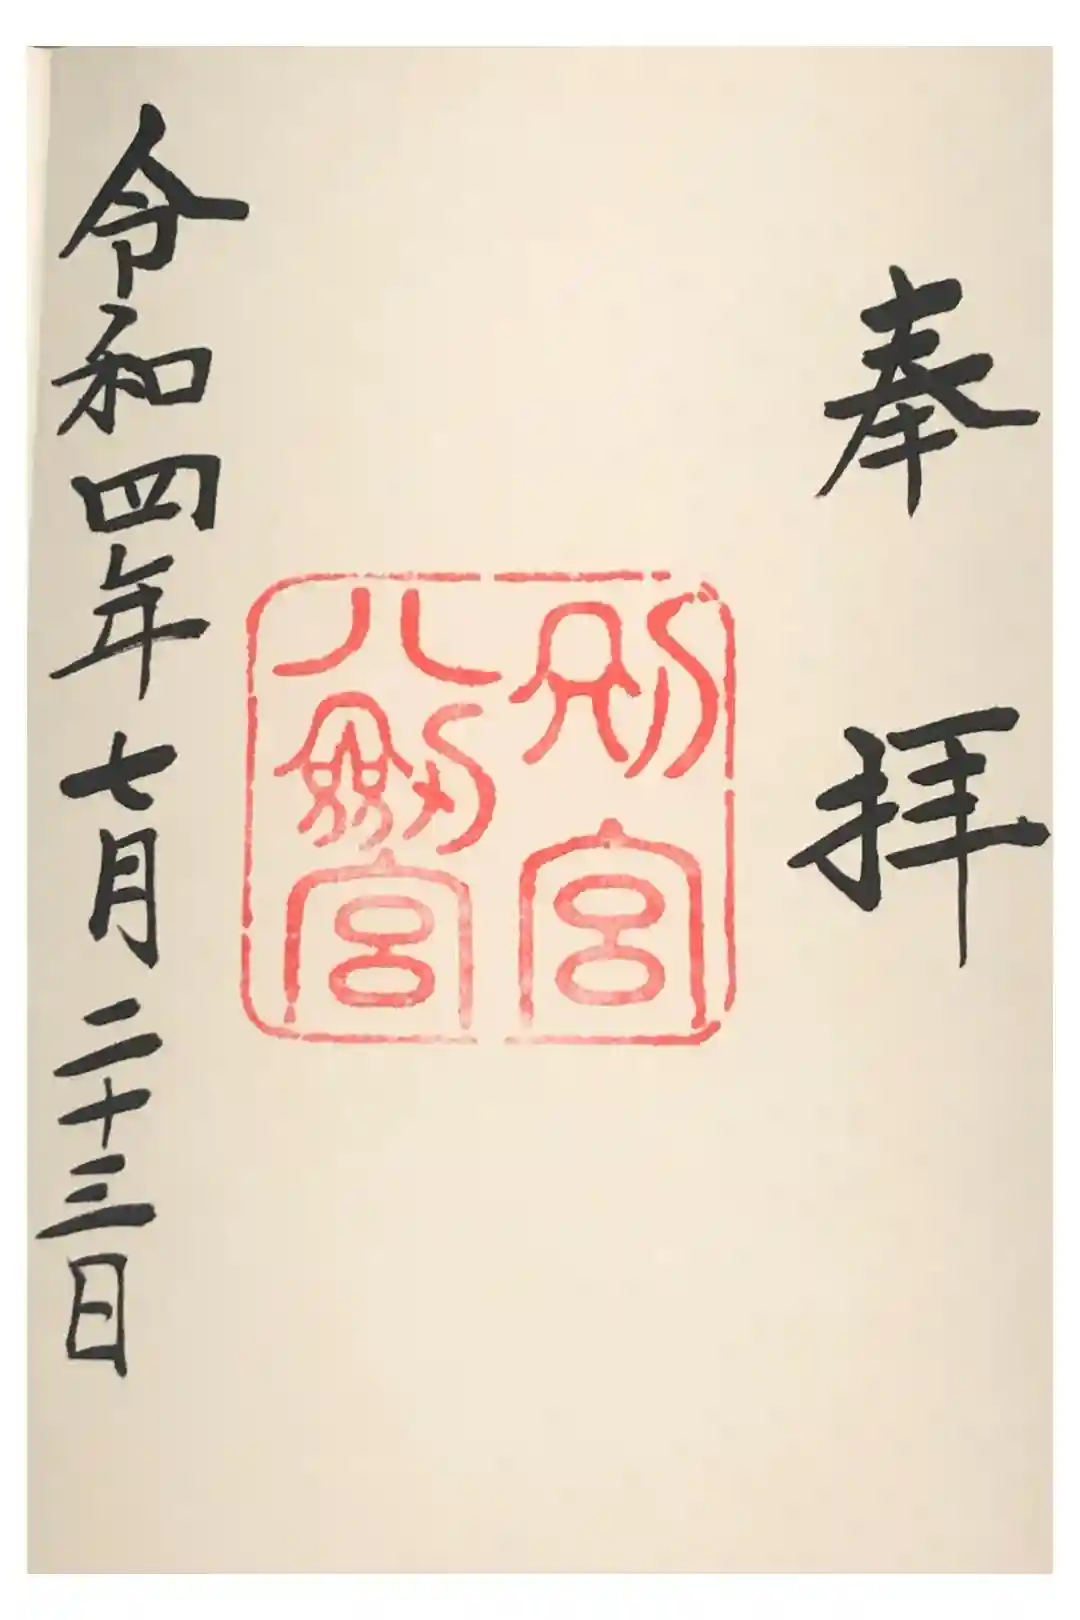 奉拝
別宮
八剱宮
令和四年七月二十三日